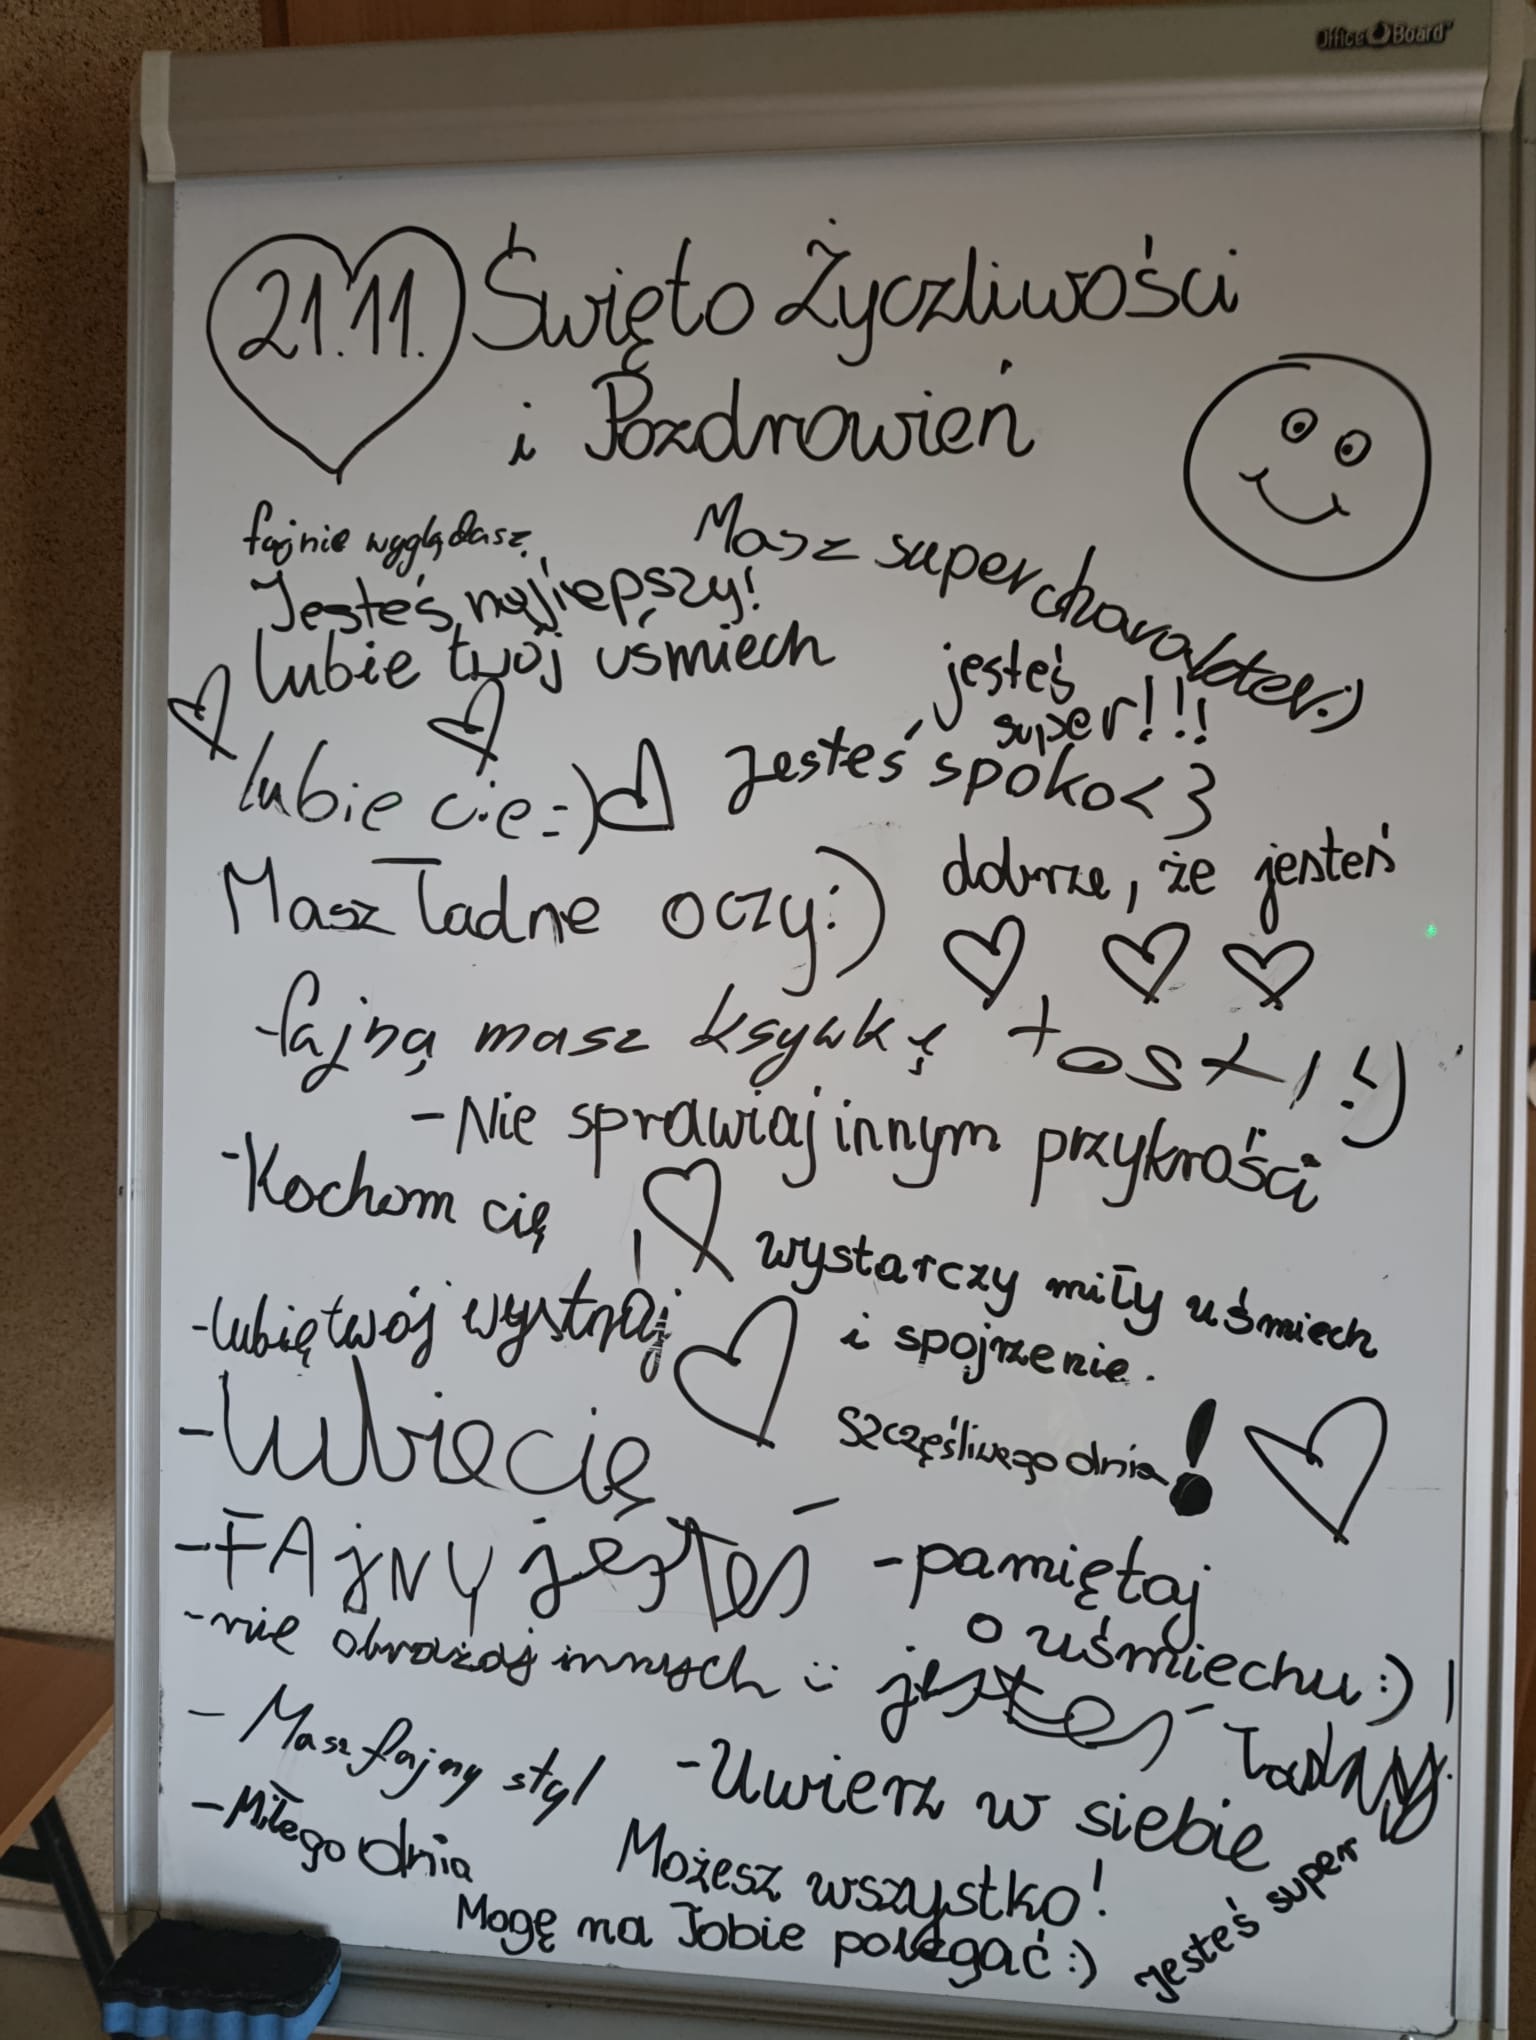 Office Board
21.11. Święto Życzliwości
i Pozdrowień
fajnie wyglądasz
Masz super charakter:)
Jesteś najlepszy!
lubie twój uśmiech
jesteś
super!!!
lubie cie=)
Jesteś spoko<3
Masz ładne oczy:)
dobrze, że jesteś
-fajną masz ksywkę tost!:)
-Nie sprawiaj innym przykrości
-Kocham cię
wystarczy miły uśmiech
i spojrzenie.
-lubię twój wystrój!
-lubię cię
Szczęśliwego dnia!
-FAjNy jesteś
-pamiętaj
o uśmiechu:)
-nie obrażaj innych :)
jesteś ładny!
-Masz fajny styl
-Uwierz w siebie
-Miłego dnia
Możesz wszystko!
Mogę na Tobie polegać:)
Jesteś super